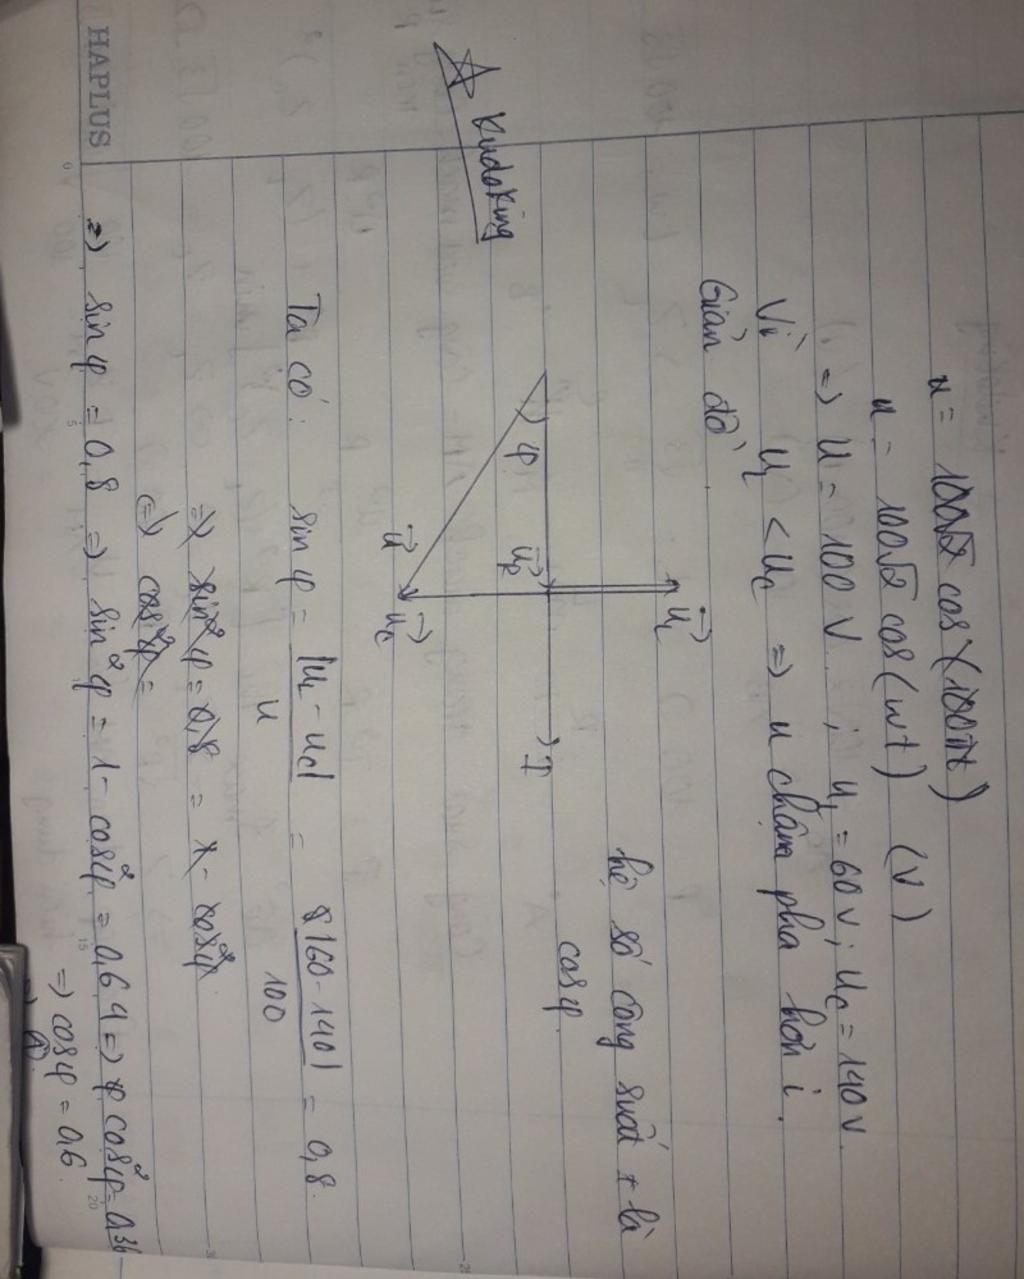 u = 100√2 cos (100πt)
u = 100√2 cos (ωt) (V)
=> U = 100 V ; U_L = 60 V ; U_C = 140 V.
Vì U_L < U_C => u chậm pha hơn i.
Giản đồ
hệ số công suất
là
cosφ
U_L
φ U_R I
U U_C
Kudoking
Ta có: sin φ = |U_L - U_C| / U = |60 - 140| / 100 = 0,8.
=> sin²φ = 0,8 = 1 - cos²φ
=> cos²φ =
=> sin φ = 0,8 => sin²φ = 1 - cos²φ = 0,64 => cos²φ = 0,36
=> cosφ = 0,6
=> A
HAPLUS
0 5 15 20